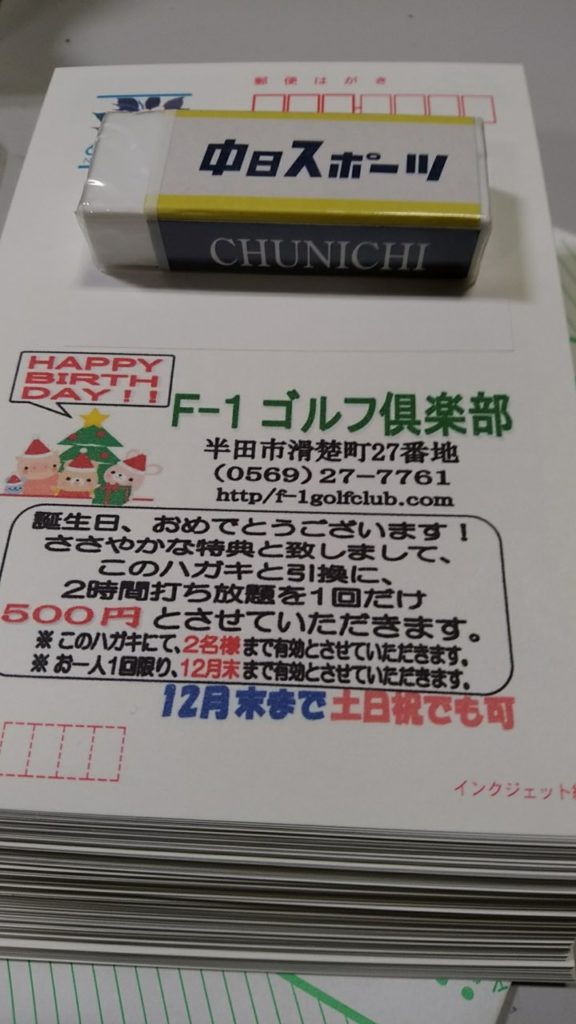 郵便はがき
中日スポーツ
CHUNICHI
HAPPY
BIRTH
DAY!!
F-1 ゴルフ倶楽部
半田市滑楚町27番地
(0569)27-7761
http/f-1golfclub.com
誕生日、おめでとうございます！
ささやかな特典と致しまして、
このハガキと引換に、
2時間打ち放題を1回だけ
500円とさせていただきます。
※このハガキにて、2名様まで有効とさせていただきます。
※お一人1回限り、12月末まで有効とさせていただきます。
12月末まで土日祝でも可
インクジェット